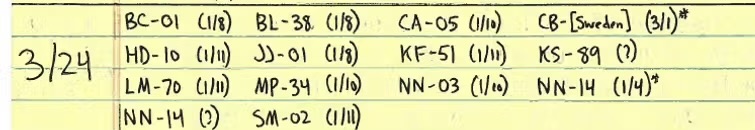 BC-01 (1/8) BL-38 (1/8) CA-05 (1/10) CB-[Sweden] (3/1)*
3/24 HD-10 (1/11) JJ-01 (1/8) KF-51 (1/11) KS-89 (?)
LM-70 (1/11) MP-34 (1/10) NN-03 (1/10) NN-14 (1/4)*
NN-14 (?) SM-02 (1/11)